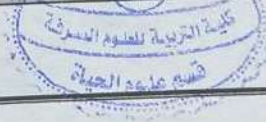 كلية التربية للعلوم الصرفة
قسم علوم الحياة